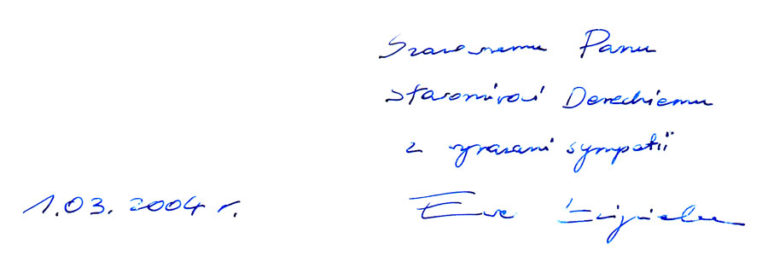 Szanownemu Panu
Sławomirowi Dereckiemu
z wyrazami sympatii
1.03.2004 r. Ewa